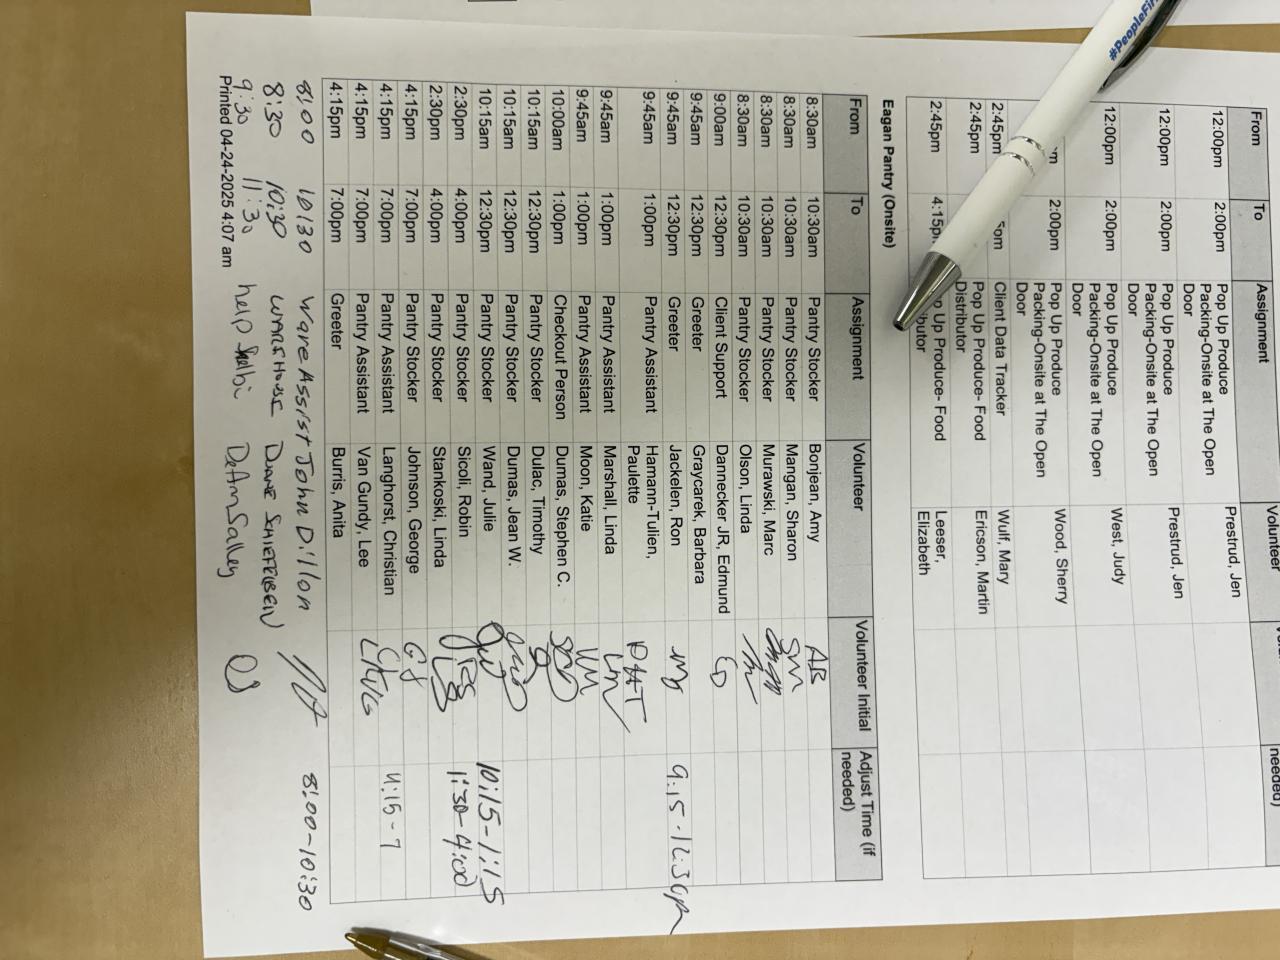 #PeopleFir
From To Assignment Volunteer
needed)
12:00pm 2:00pm Pop Up Produce Packing-Onsite at The Open Door Prestrud, Jen
12:00pm 2:00pm Pop Up Produce Packing-Onsite at The Open Door Prestrud, Jen
12:00pm 2:00pm Pop Up Produce Packing-Onsite at The Open Door West, Judy
2:00pm Pop Up Produce Packing-Onsite at The Open Door Wood, Sherry
2:45pm Client Data Tracker Wulf, Mary
2:45pm Pop Up Produce- Food Distributor Ericson, Martin
2:45pm 4:15p Up Produce- Food Leeser, Elizabeth
Eagan Pantry (Onsite)
From To Assignment Volunteer Volunteer Initial Adjust Time (if needed)
8:30am 10:30am Pantry Stocker Bonjean, Amy AB
8:30am 10:30am Pantry Stocker Mangan, Sharon SM
8:30am 10:30am Pantry Stocker Murawski, Marc
8:30am 10:30am Pantry Stocker Olson, Linda
9:00am 12:30pm Client Support Dannecker JR, Edmund ED
9:45am 12:30pm Greeter Graycarek, Barbara
9:45am 12:30pm Greeter Jackelen, Ron 9:15-12:30pm
9:45am 1:00pm Pantry Assistant Hamann-Tulien, Paulette PH-T
9:45am 1:00pm Pantry Assistant Marshall, Linda LM
9:45am 1:00pm Pantry Assistant Moon, Katie KM
10:00am 1:00pm Checkout Person Dumas, Stephen C. SCD
10:15am 12:30pm Pantry Stocker Dulac, Timothy
10:15am 12:30pm Pantry Stocker Dumas, Jean W. JWD
10:15am 12:30pm Pantry Stocker Wand, Julie JW 10:15-1:15
2:30pm 4:00pm Pantry Stocker Sicoli, Robin RS 1:30-4:00
2:30pm 4:00pm Pantry Stocker Stankoski, Linda LS
4:15pm 7:00pm Pantry Assistant Johnson, George GJ
4:15pm 7:00pm Pantry Assistant Langhorst, Christian 4:15-7
4:15pm 7:00pm Pantry Assistant Van Gundy, Lee LAVG
4:15pm 7:00pm Greeter Burris, Anita
8:00 10:30 Ware Assist John Dillon 8:00-10:30
8:30 10:30 WAREHOUSE DUANE SCHIEFELBEIN
9:30 11:30 help Shelbi DeAnn Salley DS
Printed 04-24-2025 4:07 am